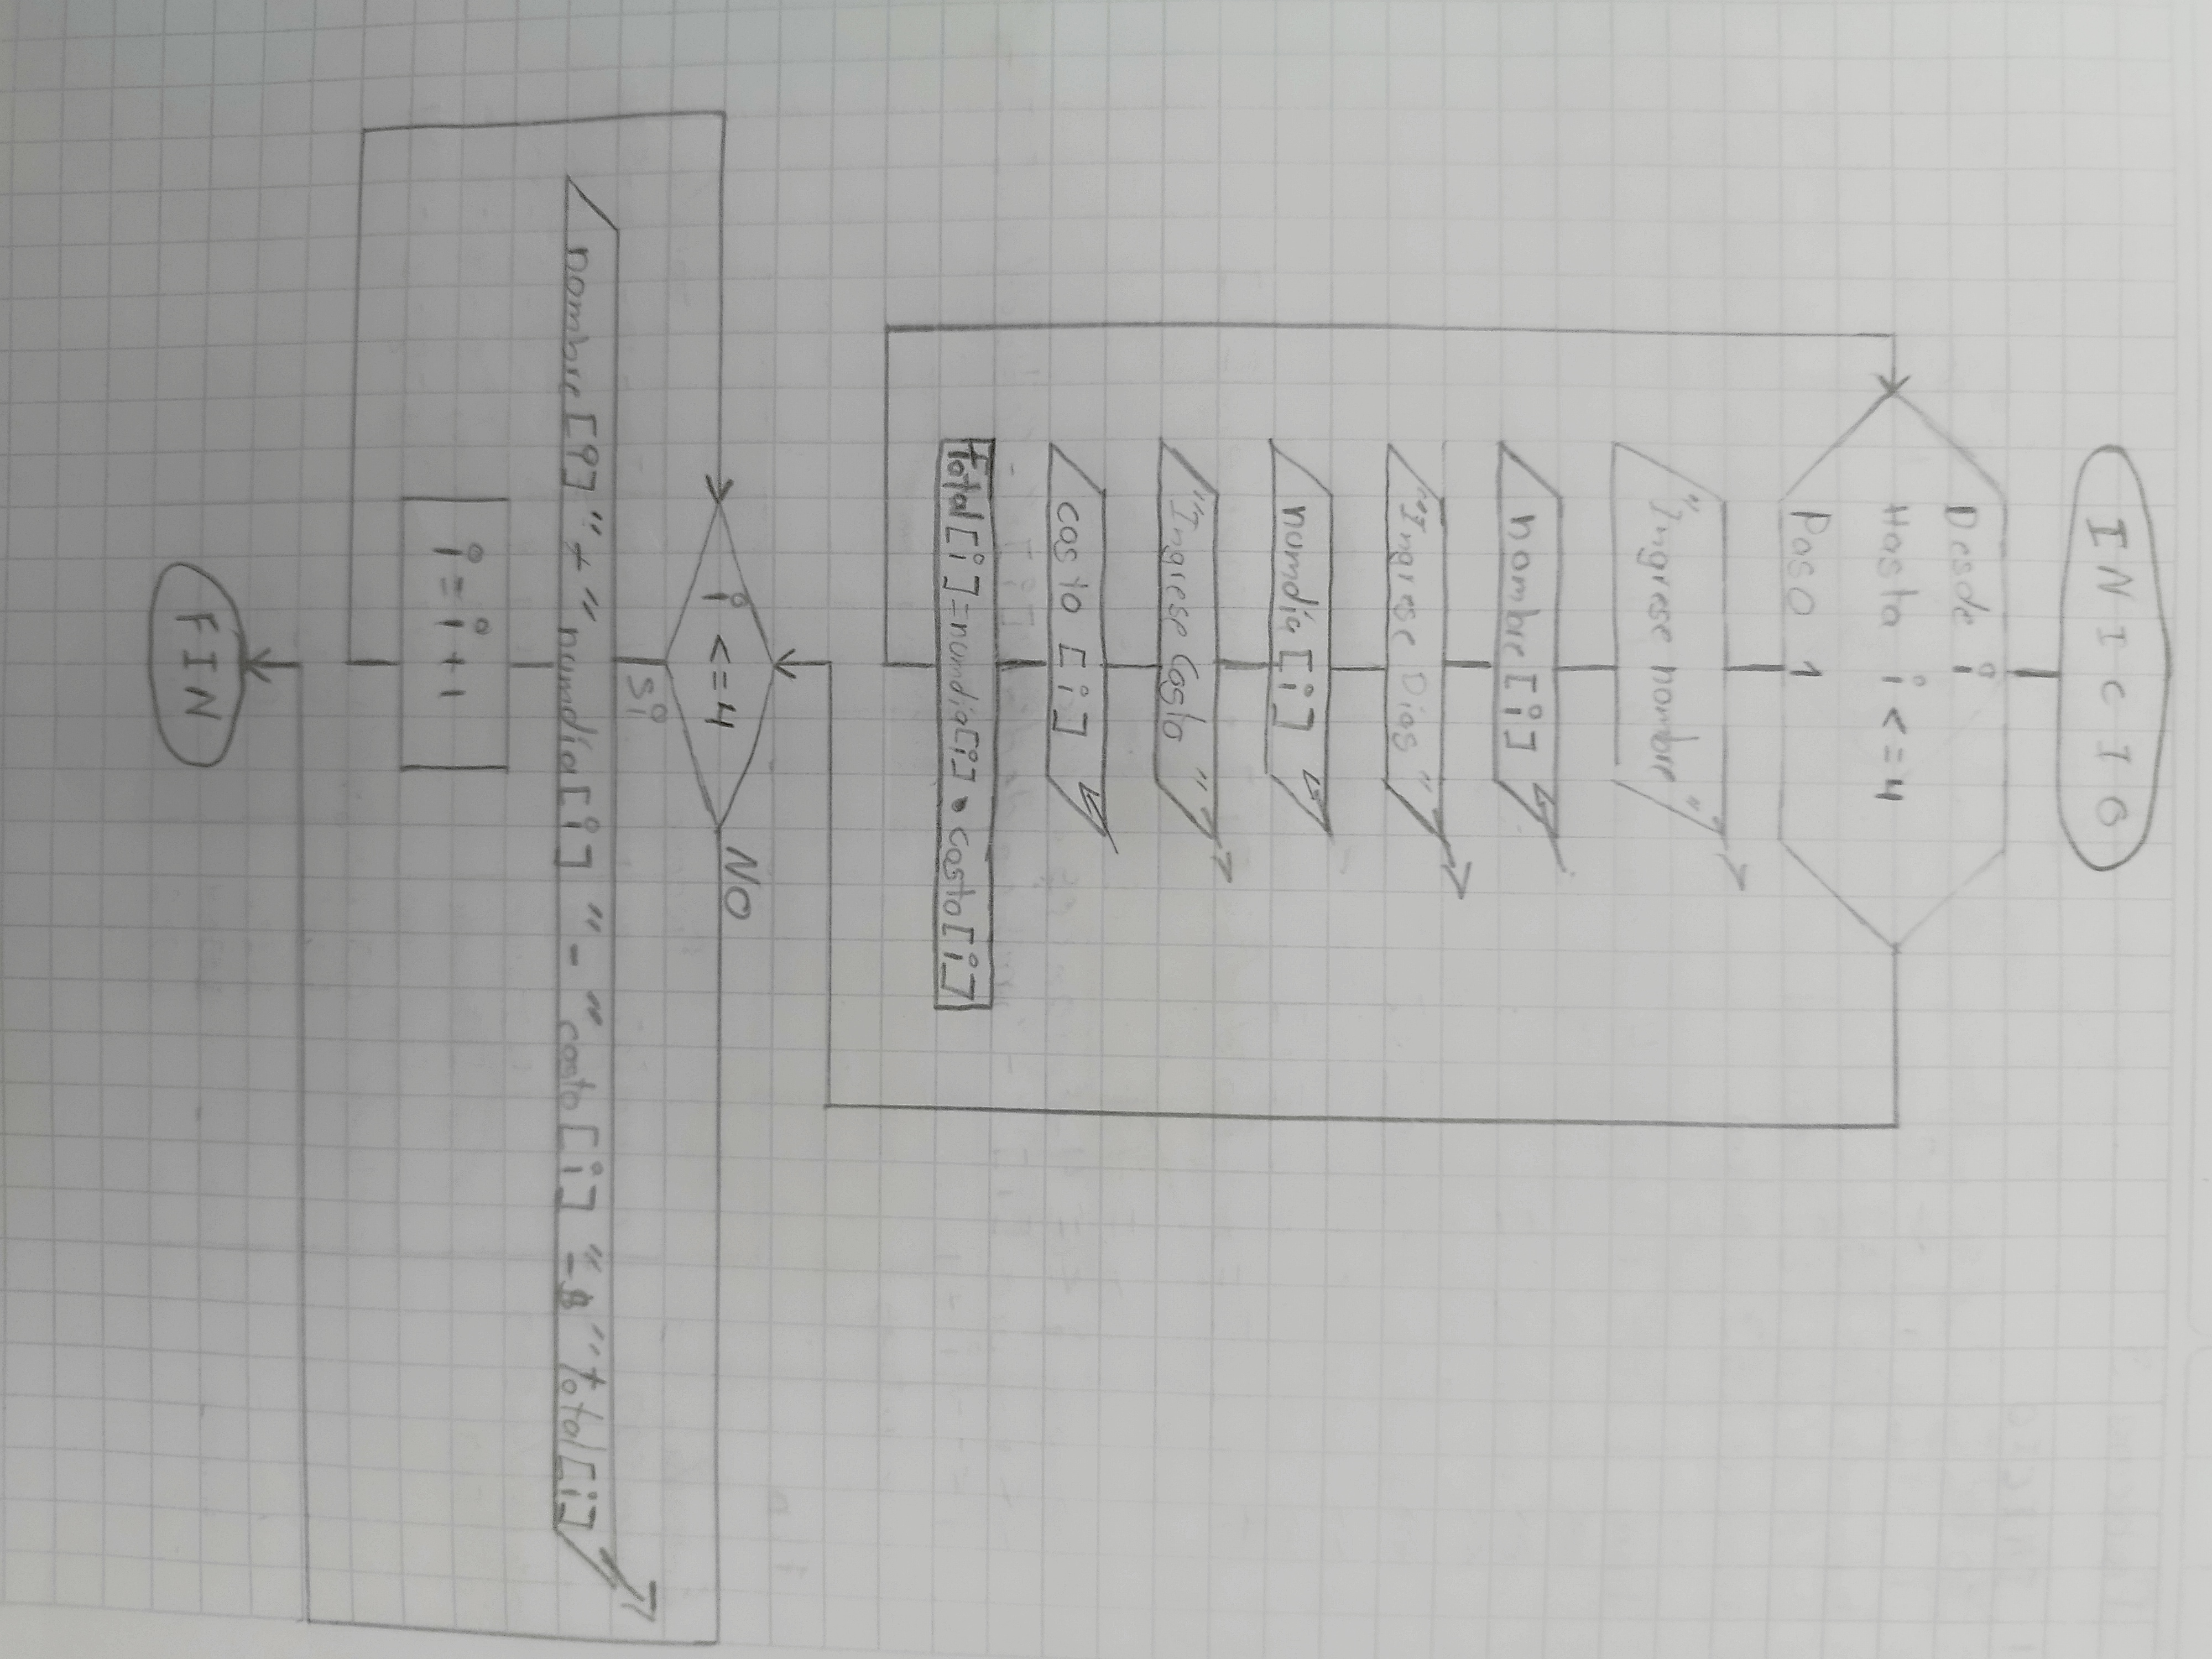 INICIO
Desde i
Hasta i <= 4
Paso 1
"Ingrese nombre"
nombre [i]
"Ingrese Dias"
numdía [i]
"Ingrese Costo"
costo [i]
Total[i]=numdia[i] • costo[i]
i <= 4
NO
si
nombre [9] "-" numdía [i] "-" costo [i] "-$" total[i]
i = i + 1
FIN